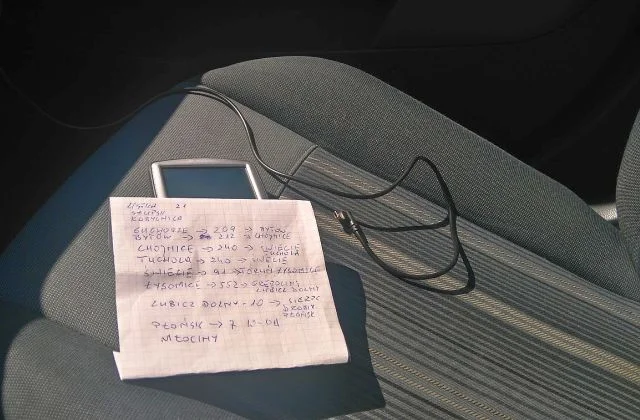 21
SŁUPSK
KOBYLNICA
SUCHORZE → 209 → BYTÓW
BYTÓW → 212 → CHOJNICE
CHOJNICE → 240 → ŚWIECIE
TUCHOLA
TUCHOLA → 240 → ŚWIECIE
ŚWIECIE → 91 → TORUŃ ŁYSOMICE
ŁYSOMICE → 552 → GRĘBOCIN
LUBICZ DOLNY
LUBICZ DOLNY - 10 → SIERPC
DROBIN
PŁOŃSK
PŁOŃSK → 7
MŁOCINY